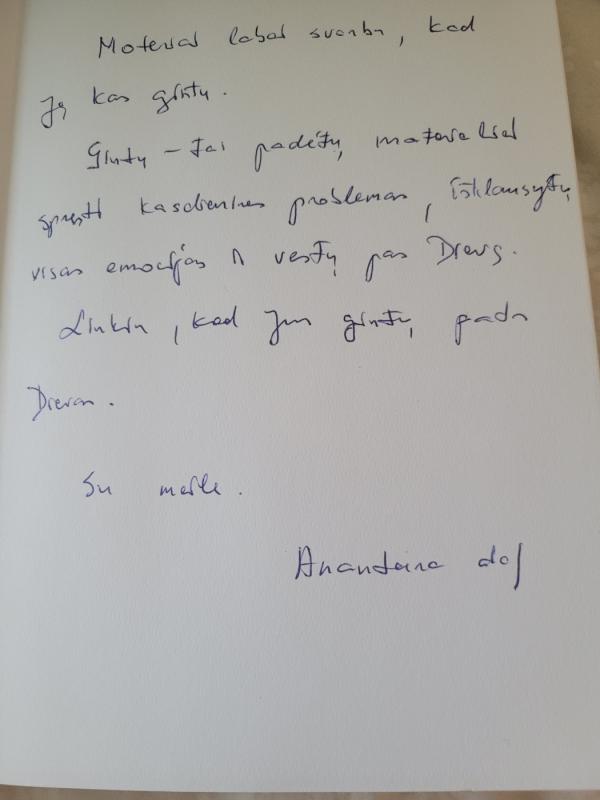 Moteriai labai svarbu, kad
ją kas gintų.
Gintų – tai padėtų materialiai
spręsti kasdienines problemas, išklausytų
visas emocijas ir vestų pas Dievą.
Linkiu, kad Jus gintų pads
Dievas.
Su meile.
Anantaina das